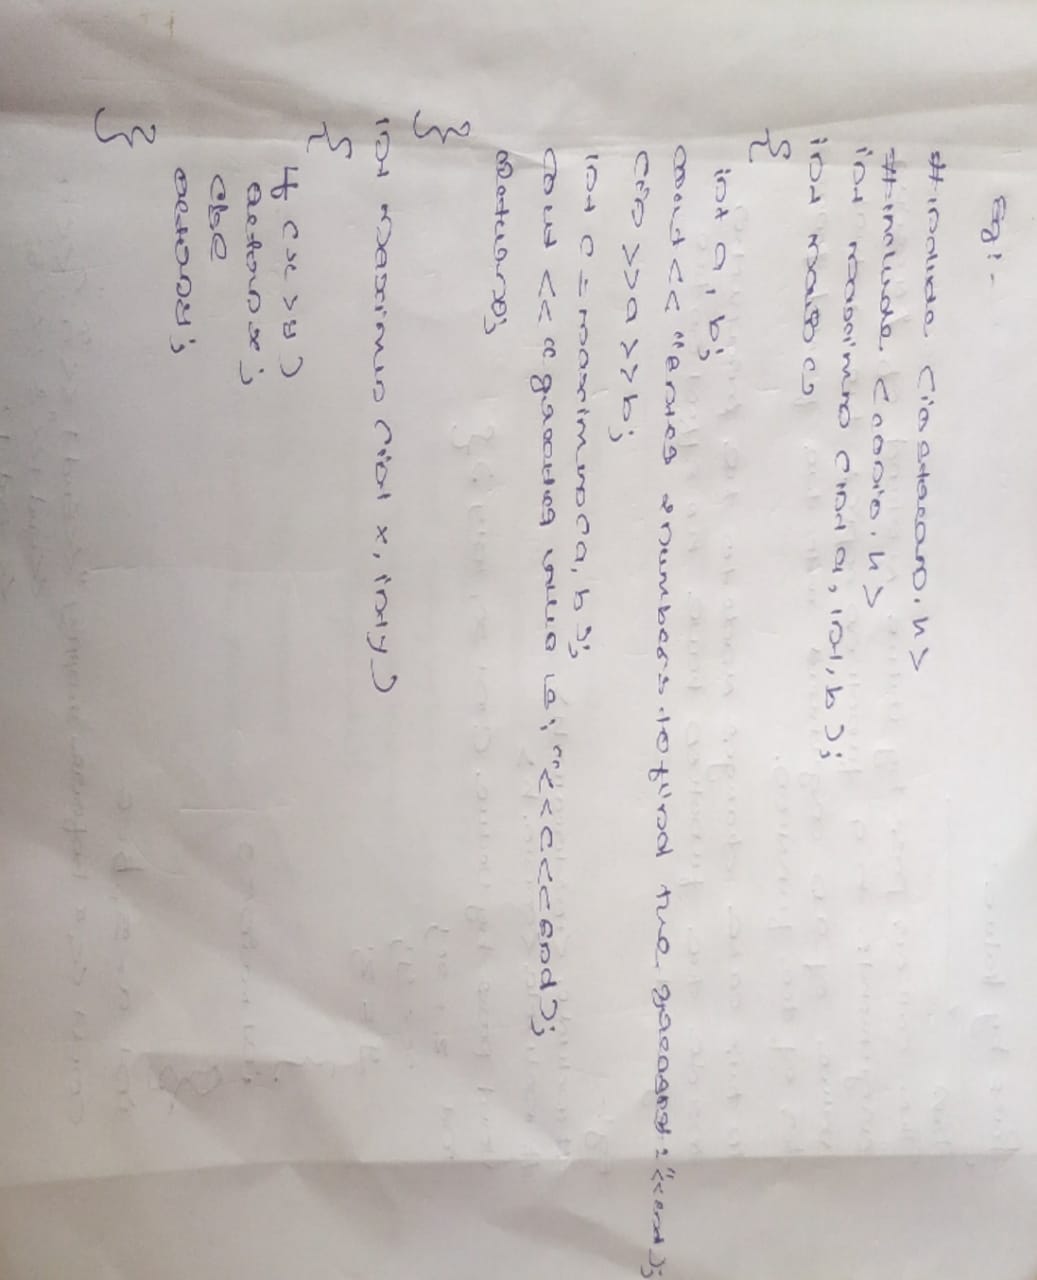 Eg:-
#include <iostream.h>
#include <conio.h>
int maximum (int a, int, b);
int main ()
{
int a, b;
cout << "enter 2 numbers to find the greatest:" << end);
cin >> a >> b;
int c = maximum (a, b);
cout << "greater value is; "<< c << end);
return 0;
}
int maximum (int x, int y)
{
if (x > y)
return x;
else
return y;
}